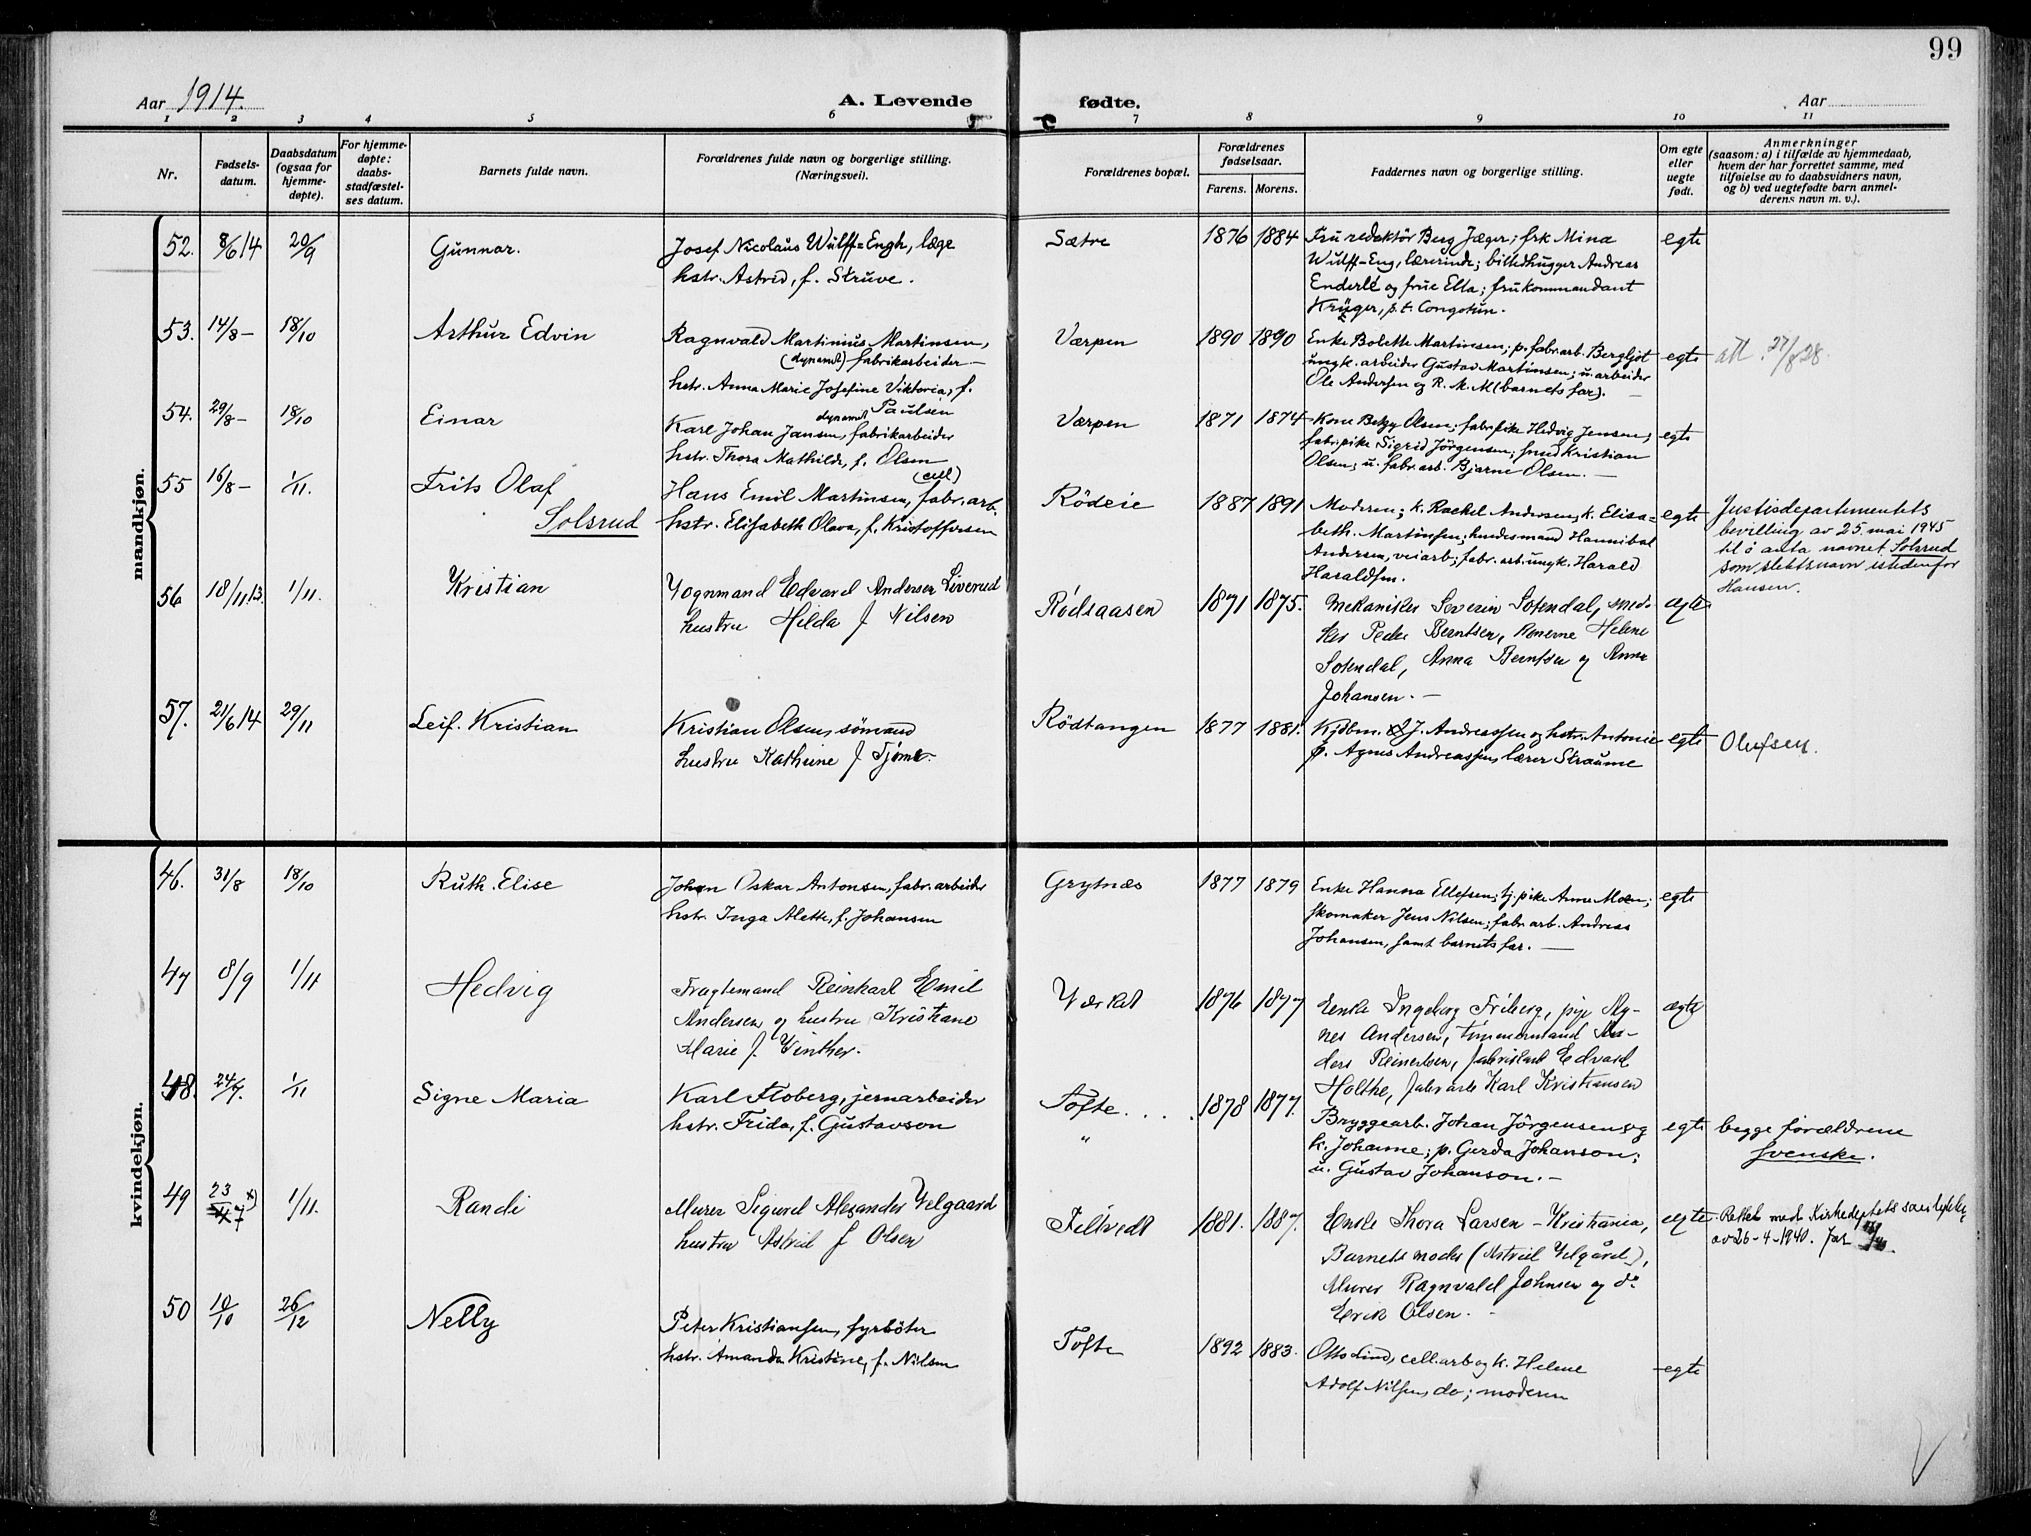 99
Aar 1914.
A. Levende fødte.
Aar
1 2 3 4 5 6 7 8 9 10 11
Nr.
Fødsels-
datum.
Daabsdatum
(ogsaa for
hjemme-
døpte).
For hjemme-
døpte:
daabs-
stadfæstel-
ses datum.
Barnets fulde navn.
Forældrenes fulde navn og borgerlige stilling.
(Næringsvei).
Forældrenes bopæl.
Forældrenes
fødselsaar.
Farens. Morens.
Faddernes navn og borgerlige stilling.
Om egte
eller
uegte
født.
Anmerkninger
(saasom: a) i tilfælde av hjemmedaab,
hvem der har forrettet samme, med
tilføielse av to daabsvidners navn,
og b) ved uegtefødte barn anmel-
derens navn m. v.).
mandkjøn.
52. 8/6 14 20/9 Gunnar.
Josef Nicolaus Wulff-Engh, læge
hstr. Astrid, f. Struve.
Sætre 1876 1884
Fru redaktör Berg Jæger; frk Mina
Wulff-Eng, lærerinde; billedhugger Andreas
Enderlé og frue Ella; fru kommandant
Krüger, p.t. Congotun.
egte
53. 14/8 – 18/10 Arthur Edvin
Ragnvald Martinius Martinsen,
(dynamit) fabrikarbeider –
hstr. Anna Marie Josefine Viktoria, f.
Paulsen
Værpen 1890 1890
Enke Bolette Martinsen; p. fabr.arb. Bergljot
ungk. arbeider Gustav Martinsen; u. arbeider
Ole Andersen og R. M. M (barnets far). –
egte
att. 27/8 28.
54. 29/8 – 18/10 Einar
dynamit
Karl Johan Jansen, fabrikarbeider
hstr. Thora Mathilde, f. Olsen
Værpen 1871 1874
Kone Betzy Olsen; fabr.pike Hedvig Jensen;
fabr.pike Sigrid Jörgensen; smed Kristian
Olsen; u. fabr.arb. Bjarne Olsen. –
egte
55 16/8 – 1/11. Frits Olaf
Solsrud
(cell)
Hans Emil Martinsen, fabr.arb.
hstr. Elisabeth Olava, f. Kristoffersen
Rödeie 1887 1891
Moderen; k. Rackel Andersen, k. Elisa-
beth. Martinsen; handesmand Hannibal
Andersen, veiarb; fabr. arb. ungk. Harald
Haraldsen.
egte
Justisdepartementets
bevilling av 25. mai 1945
til å anta navnet Solsrud
som slektsnavn istedenfor
Hansen.
56 18/11 13. 1/11. Kristian
Vognmand Edvard Andersen Liverud
hustru Hilda f Nilsen
Rödsaasen 1871 1875.
Mekaniker Severin Sotendal, sned-
ker Peder Berntsen, Konerne Helene
Sotendal, Anna Berntsen og Anna
Johansen. –
egte
57. 21/6 14 29/11 Leif. Kristian
Kristian Olsen, sömand
hustru Kathrine f Tjöme.
Rödtangen 1877 1881.
Kjöbm. J. Andreassen og hstr. Antonie
p. Agnes Andreassen, lærer Straume
egte
Olufsen.
kvindekjøn.
46. 31/8 18/10 Ruth. Elise
Johan Oskar Antonsen, fabr. arbeider
hstr. Inga Alette, f. Johansen
Grytnæs 1877 1879
Enke Hanna Ellefsen; tj. pike Anna Moen;
skomaker Jens Nilsen; fabr. arb. Andreas
Johansen, samt barnets far. –
egte
47 8/9 1/11 Hedvig
Fragtemand Reinhart Emil
Andersen og hustru Kristiane
Marie f. Winther.
Værket 1876 1877
Enke Ingeborg Friberg, pige Ag-
nes Andersen, tømmermand An-
ders Reinertsen, fabriksarb Edvard
Holthe, fabr arb Karl Kristiansen
ægte
48. 24/7. 1/11 Signe Maria
Karl Floberg, jernarbeider
hstr. Frida, f. Gustavson
Tofte. . . .
" 1878 1877.
Bryggearb. Johan Jörgensen og
k. Johanne; p. Gerda Johanson;
u. Gustav Johanson. –
egte
begge forældrene
svenske.
49 23/7 x) 1/11. Randi
Murer Sigurd Alexander Velgaard
hustru Astrid f Olsen
Filtvedt 1881. 1887.
Enke Thora Larsen – Kristiania,
Barnets moder (Astrid Velgård),
Murer Ragnvald Johnsen og do
Erik Olsen. –
egte
Rettet med Kirkedeptets samtykke
av 26-4-1940.
50 10/10 26/12 Nelly
Peter Kristiansen, fyrböter
hstr. Amanda Kristine, f. Nilsen
Tofte 1892 1883.
Otto Lind, cell.arb og k. Helene
Adolf Nilsen, do; moderen
egte